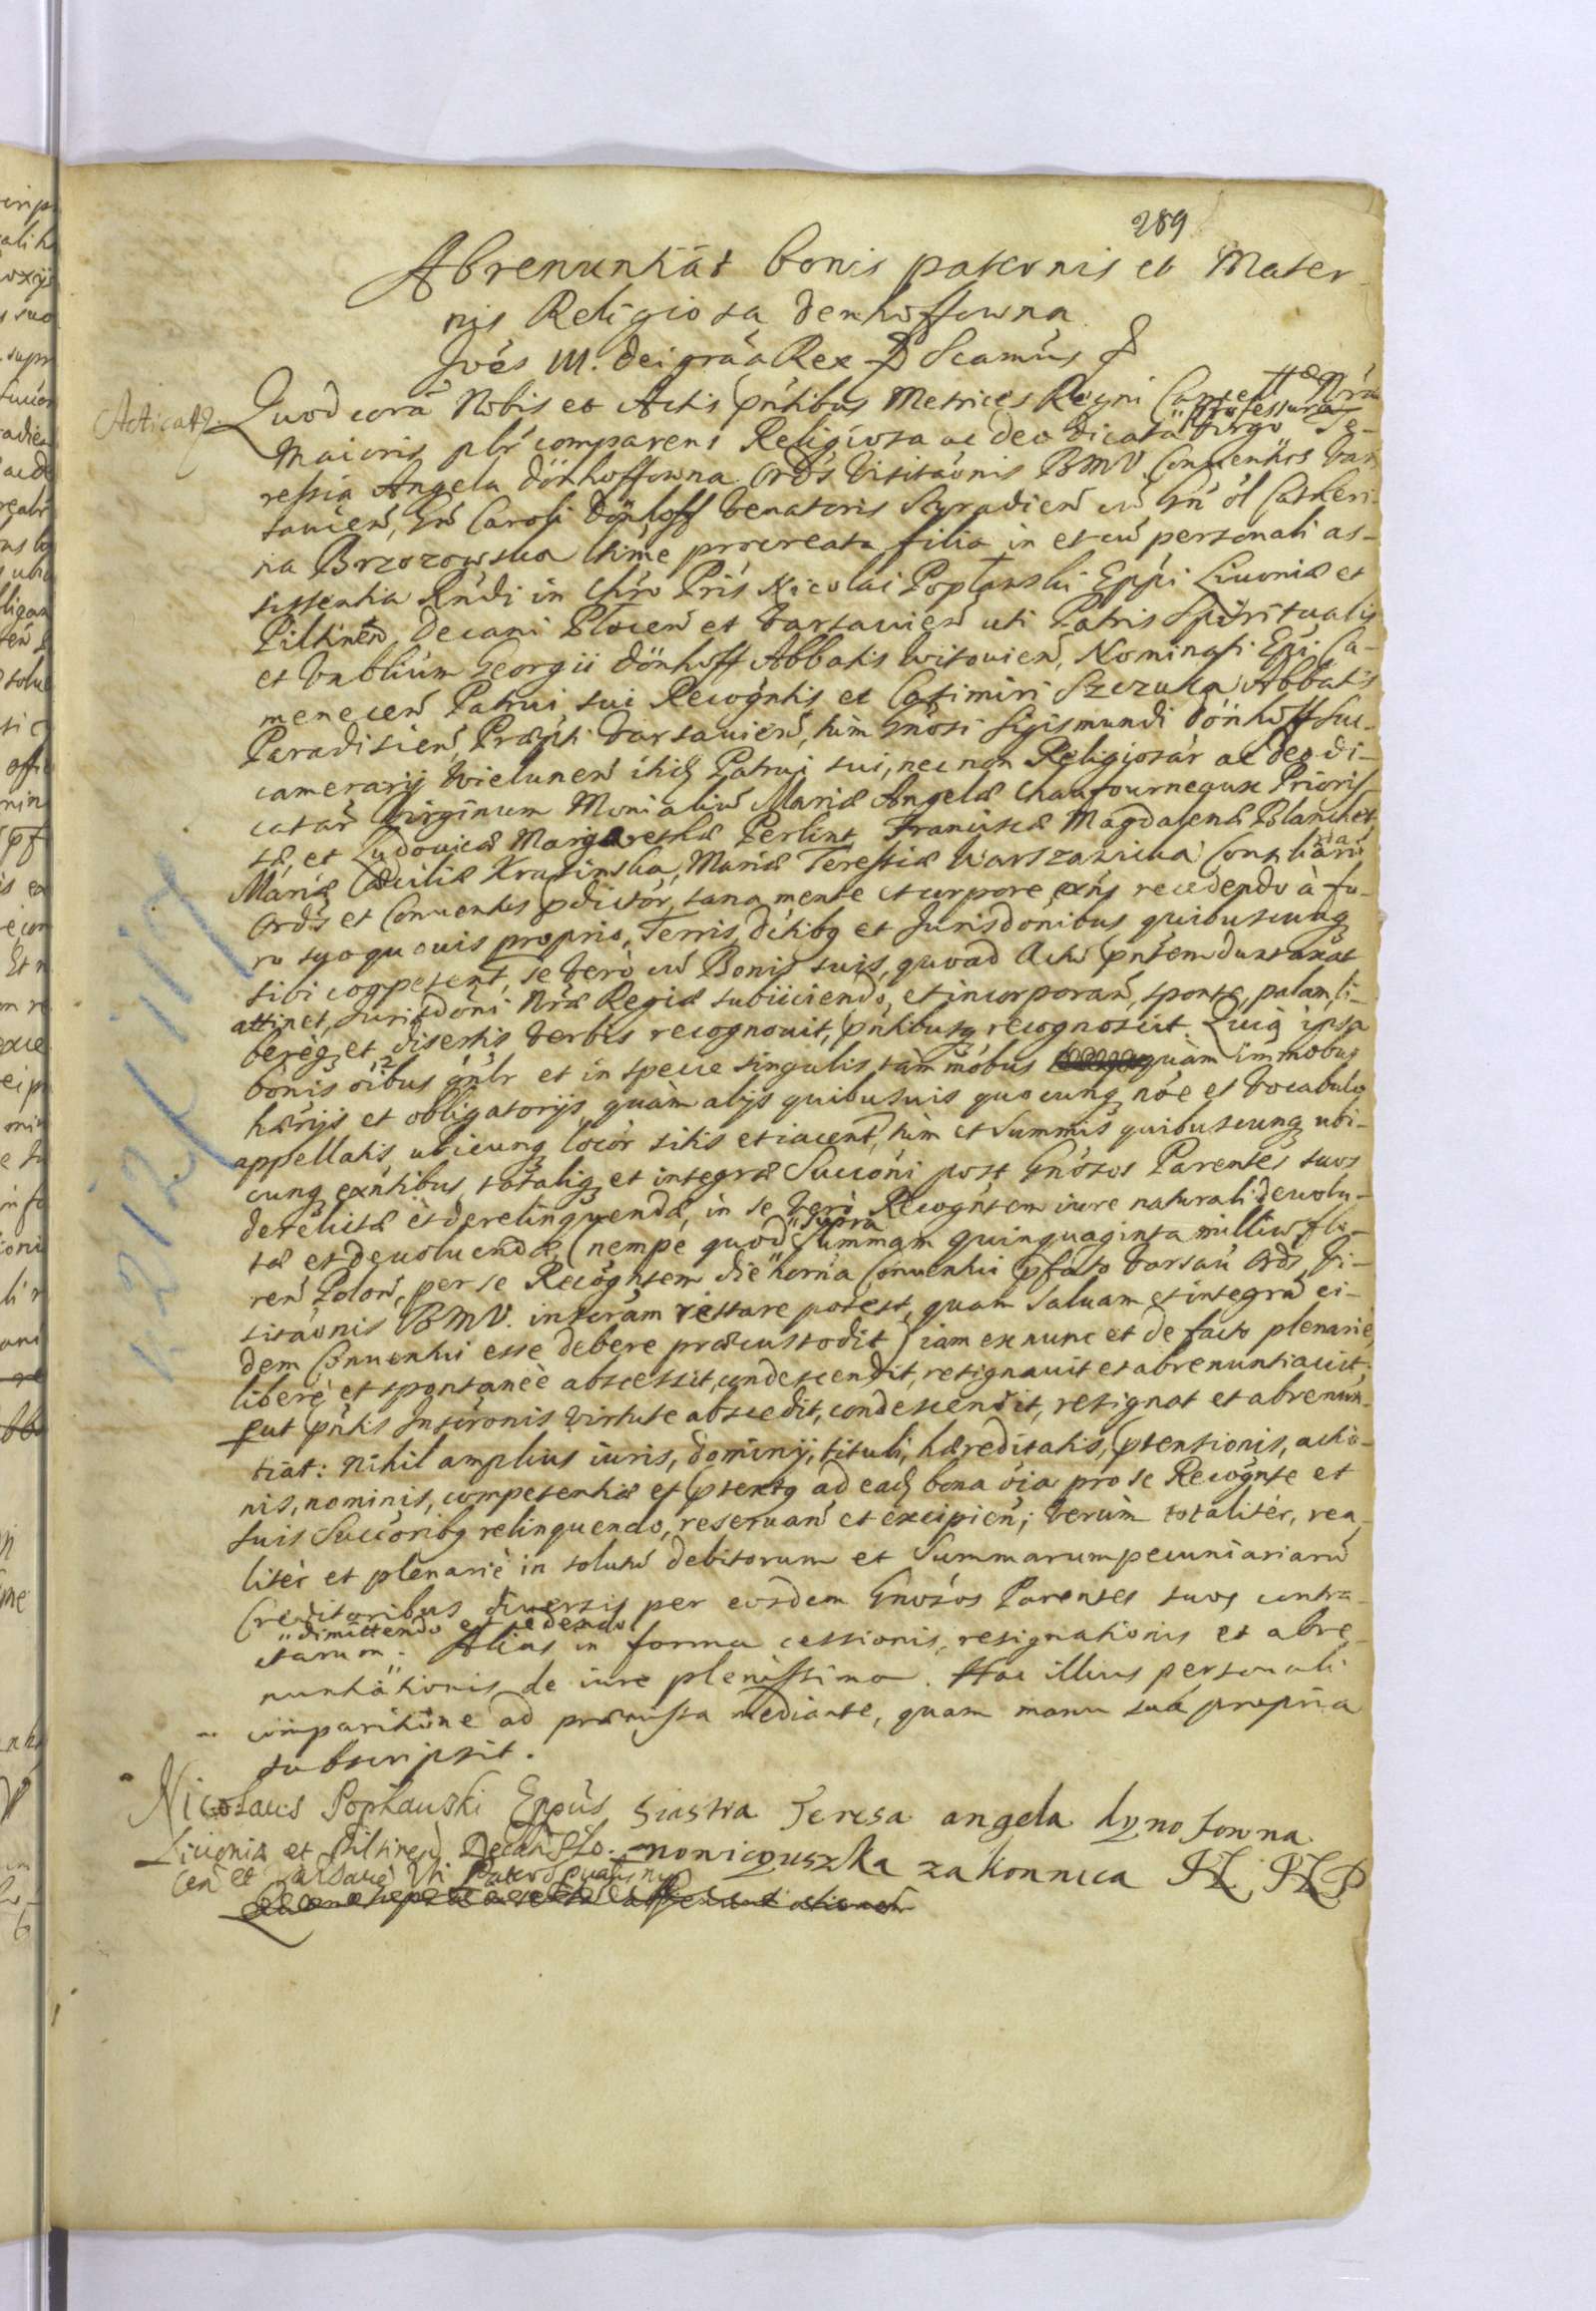 289
Abrenuntiat bonis paternis et Mater-
nis Religiosa denhoffowna
Joes III. dei gra Rex Scamus
Acticat
Quod cora Nobis et Actis pntibus Metrices Regni Cancell Nra
Maioris plr comparens Religiosa ac deo dicata Virgo professura Te-
ressia Angela dönhoffowna Ordis Visitaonis BMV Conuentus Var
sauien, Gn Caroli dönhoff Venatoris Syradien cu Gn ol Catheri-
na Brzozowska ltime procreata filia in et cu personali as-
sistentia Rndi in Chro Pris Nicolai Poplawski Eppi Liuoniæ et
Piltinen, decani Plocen et Varsauien uti Patris Spiritualis
et Vnblium Georgii dönhoff Abbatis Witouien, Nominati Eppi Ca-
menecen Patrui sui Recogntis et Casimiri Szczuka Abbatis
Paradisien, Præpti Varsauien, tum Gnosi Sigismundi dönhoff Suc-
camerarij Wielunen itid Patrui sui, nec non Religiosar ac deo di-
catar Virginum Monialiu Mariæ Angelæ Chaufourneque Prioris
sæ, et Ludouicæ Margarethæ Perlint Franciscæ Magdalenæ Blanchet
Mariæ Cæciliæ Krasinska, Mariæ Teressiæ Warszawicka Consiliaru
Ordis et Conuentus pdictor, sana mente et corpore exns recedendo à fo-
ro suo quouis proprio, Terris, dtibq et Jurisdonibus quibuscunq
sibi competent, se vero cu Bonis suis, quoad Actu pntem duntaxat
attinet, Jurisdoni Nræ Regiæ subiiciendo, et incorporan, sponte, palam, li-
bereq et disertis verbis recognouit, pntibusq recognoscit. Quia ipsa
bonis oibus gnlr et in specie singulis tam mobus quàm immobus
hærijs et obligatorijs quàm alijs quibusuis quocunq noe et vocabulo
appellatis, ubicunq locor sitis et iacent, tum et Summis quibuscunq ubi-
cunq exntibus, totaliq et integræ Succoni post Gnosos Parentes suos
derelictæ et derelinquendæ, in se vero Recogntem iure naturali deuolu-
tæ et deuoluendæ, (nempe quod supra Summam quinquaginta milliu flo-
ren Polon, per se Recogntem die horna Conuentui pfato Varsau Ordis Vi-
sitaonis BMV. inscram restare potest, quam saluam et integra ei-
dem Conuentui esse debere præcustodit) iam ex nunc et de facto plenarie,
liberè et spontaneè abscessit, condescendit, resignauit et abrenuntiauit,
put pntis Inscronis virtute abscedit, condescendit, resignat et abrenun-
tiat: nihil amplius iuris, dominij, tituli, hæreditatis, ptensionis, actio-
nis, nominis, competentiæ et ad ead bona oia pro se Recognte et
suis Succoribq relinquendo, reseruan et excipien; verùm totalitèr, rea-
litèr et plenariè in solutu debitorum et Summarum pecuniariaru
Creditoribus diuersis per eosdem Gnosos Parentes suos contra-
dimittendo et cedendo
ctarum. Alias in forma cessionis, resignationis et abre-
nuntiationis de iure plenissima. Hac illius personali
comparitione ad præmissa mediante, quam manu sua propria
subscripsit.
Nicolaus Popławski Eppus siostra Teresa angela
Liuoniæ et Piltinen Decan Plo- nowicyuszka zakonnica
cen et Varsauie Uti Pater Spualis mp